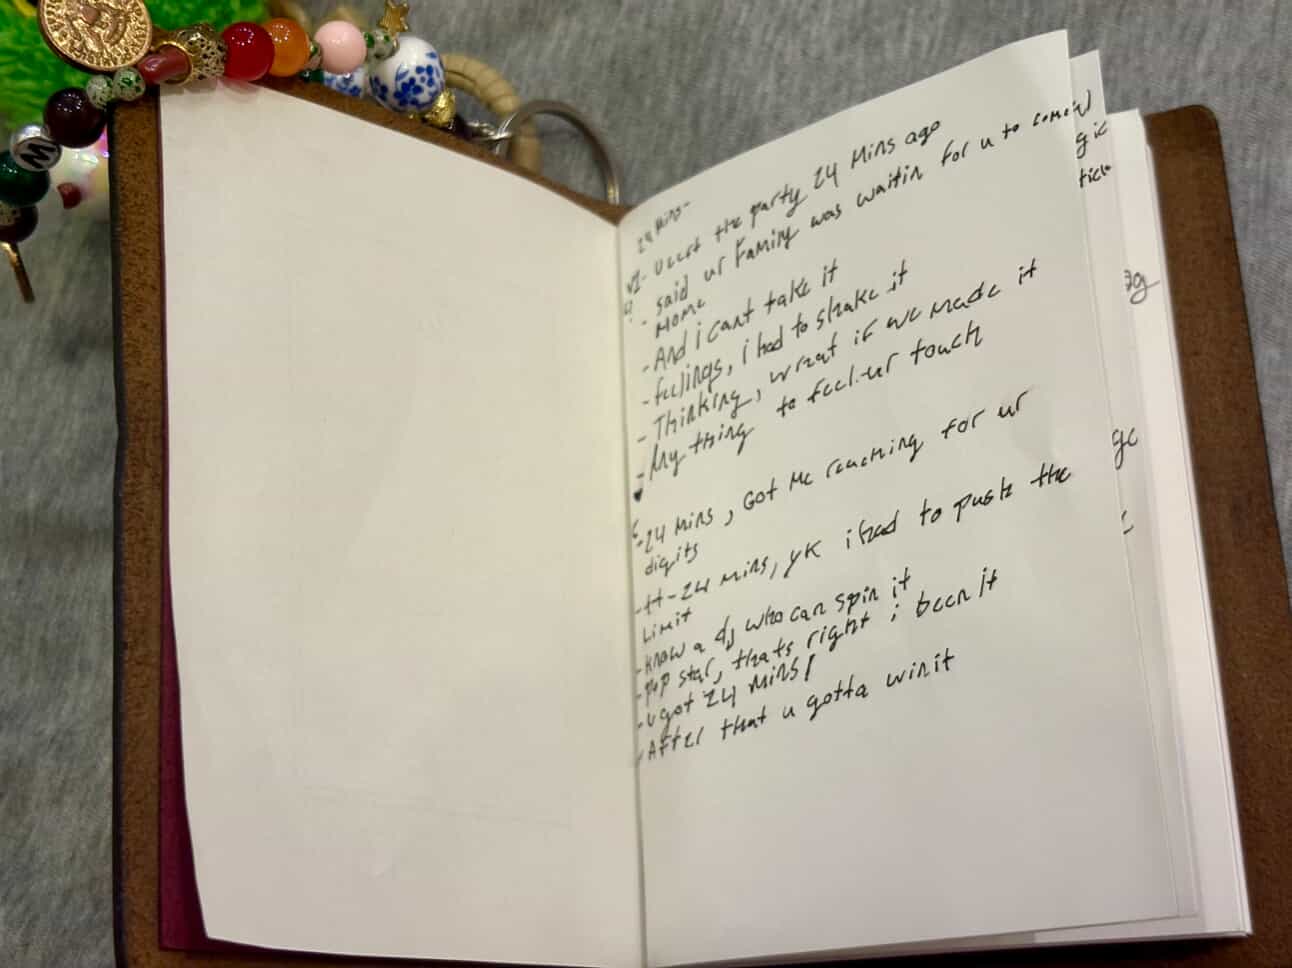 24 Mins-
V1- U left the party 24 Mins ago
- said ur Family was waitin for u to come
Home
- And i cant take it
- feelings, i had to shake it
- Thinking, what if we made it
- My thing to feel ur touch
- 24 Mins, Got Me reaching for ur
digits
- 24 mins, yk i had to push the
Limit
- know a dj who can spin it
- pop star, thats right i been it
- u got 24 mins!
- After that u gotta win it
M